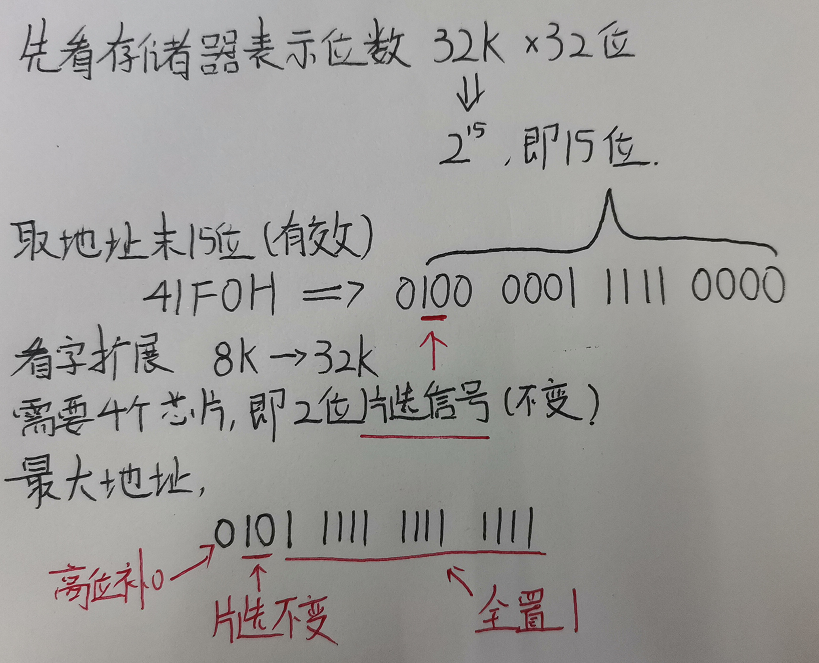 先看存储器表示位数 32K ×32位
⇓
2¹⁵,即15位.
取地址末15位(有效)
41F0H => 0100 0001 1111 0000
看字扩展 8K→32K
需要4个芯片,即2位片选信号(不变)
最大地址,
0101 1111 1111 1111
高位补0
片选不变
全置1